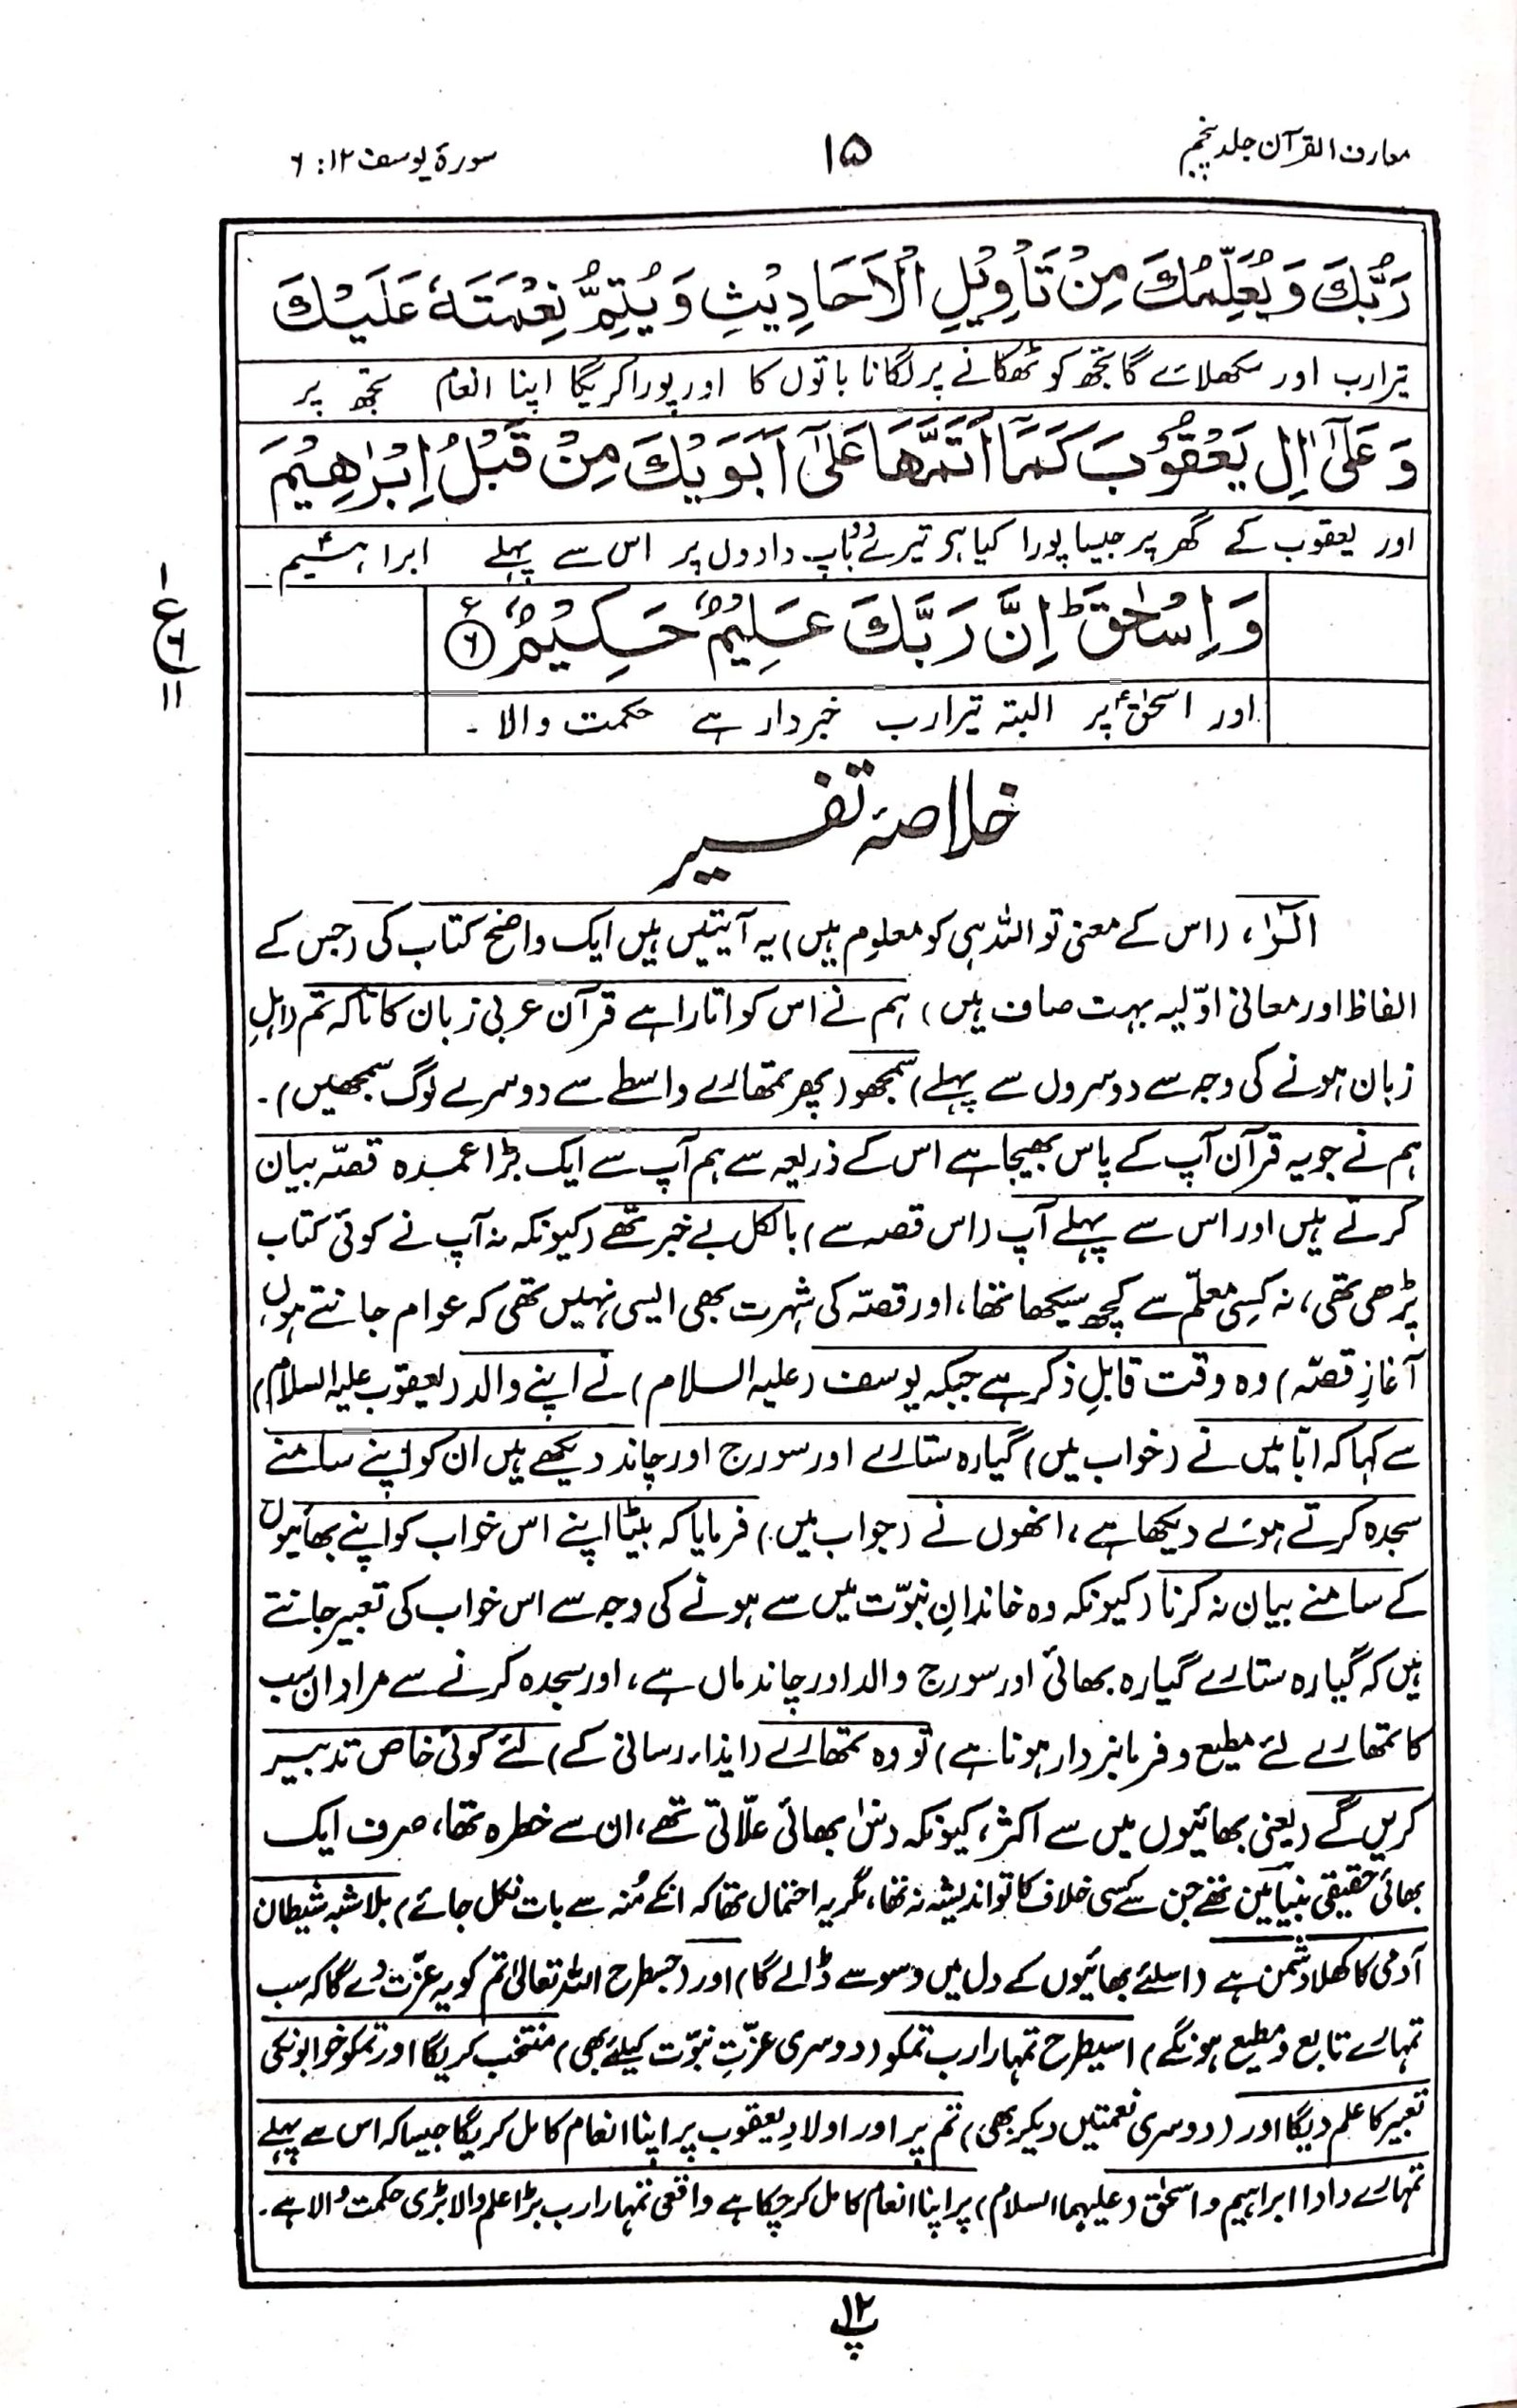 معارف القرآن جلد پنجم
۱۵
سورۃ یوسف ۱۲: ۶
رَبُّكَ وَيُعَلِّمُكَ مِنْ تَأْوِيْلِ الْاَحَادِيْثِ وَيُتِمُّ نِعْمَتَهٗ عَلَيْكَ
تیرا رب اور سکھلائے گا تجھ کو ٹھکانے پر لگانا باتوں کا اور پورا کریگا اپنا انعام تجھ پر
وَعَلٰٓى اٰلِ يَعْقُوْبَ كَمَآ اَتَمَّهَا عَلٰٓى اَبَوَيْكَ مِنْ قَبْلُ اِبْرٰهِيْمَ
اور یعقوب کے گھر پر جیسا پورا کیا ہر تیرے دو باپ دادوں پر اس سے پہلے ابراہیمؑ
وَاِسْحٰقَ ؕ اِنَّ رَبَّكَ عَلِيْمٌ حَكِيْمٌ ۶ ع
اور اسحٰقؑ پر البتہ تیرا رب خبردار ہے حکمت والا۔
۱
ع
۶
۱۱
خلاصۂ تفسیر
الٓرٰ، (اس کے معنی تو اللہ ہی کو معلوم ہیں) یہ آیتیں ہیں ایک واضح کتاب کی (جس کے
الفاظ اور معانی اوّلیہ بہت صاف ہیں) ہم نے اس کو اتارا ہے قرآن عربی زبان کا تاکہ تم (اہلِ
زبان ہونے کی وجہ سے دوسروں سے پہلے) سمجھو (پھر تمھارے واسطے سے دوسرے لوگ سمجھیں)۔
ہم نے جو یہ قرآن آپ کے پاس بھیجا ہے اس کے ذریعہ سے ہم آپ سے ایک بڑا عمدہ قصّہ بیان
کرتے ہیں اور اس سے پہلے آپ (اس قصہ سے) بالکل بے خبر تھے (کیونکہ نہ آپ نے کوئی کتاب
پڑھی تھی، نہ کسی معلّم سے کچھ سیکھا تھا، اور قصّہ کی شہرت بھی ایسی نہیں تھی کہ عوام جانتے ہوں،
آغازِ قصّہ) وہ وقت قابلِ ذکر ہے جبکہ یوسف (علیہ السلام) نے اپنے والد (یعقوب علیہ السلام)
سے کہا کہ ابّا میں نے (خواب میں) گیارہ ستارے اور سورج اور چاند دیکھے ہیں ان کو اپنے سامنے
سجدہ کرتے ہوئے دیکھا ہے، انھوں نے (جواب میں) فرمایا کہ بیٹا اپنے اس خواب کو اپنے بھائیوں
کے سامنے بیان نہ کرنا (کیونکہ وہ خاندانِ نبوّت میں سے ہونے کی وجہ سے اس خواب کی تعبیر جانتے
ہیں کہ گیارہ ستارے گیارہ بھائی اور سورج والد اور چاند ماں ہے، اور سجدہ کرنے سے مراد ان سب
کا تمھارے لئے مطیع و فرمانبردار ہونا ہے) تو وہ تمھارے (ایذاء رسانی کے) لئے کوئی خاص تدبیر
کریں گے (یعنی بھائیوں میں سے اکثر، کیونکہ دسؔ بھائی علّاتی تھے، ان سے خطرہ تھا، صرف ایک
بھائی حقیقی بنیامین تھے جن سے کسی خلاف کا تو اندیشہ نہ تھا، مگر یہ احتمال تھا کہ انکے مُنہ سے بات نکل جائے) بلاشبہ شیطان
آدمی کا کھلا دشمن ہے (اسلئے بھائیوں کے دل میں وسوسے ڈالے گا) اور (جسطرح اللہ تعالیٰ تم کو یہ عزّت دے گا کہ سب
تمہارے تابع و مطیع ہونگے) اسیطرح تمہارا رب تمکو (دوسری عزّتِ نبوّت کیلئے بھی) منتخب کریگا اور تمکو خوابونکی
تعبیر کا علم دیگا اور (دوسری نعمتیں دیکر بھی) تم پر اور اولادِ یعقوب پر اپنا انعام کامل کریگا جیسا کہ اس سے پہلے
تمہارے دادا ابراہیم و اسحٰق (علیہما السلام) پر اپنا انعام کامل کرچکا ہے واقعی تمہارا رب بڑا علم والا بڑی حکمت والا ہے۔
پ۱۲